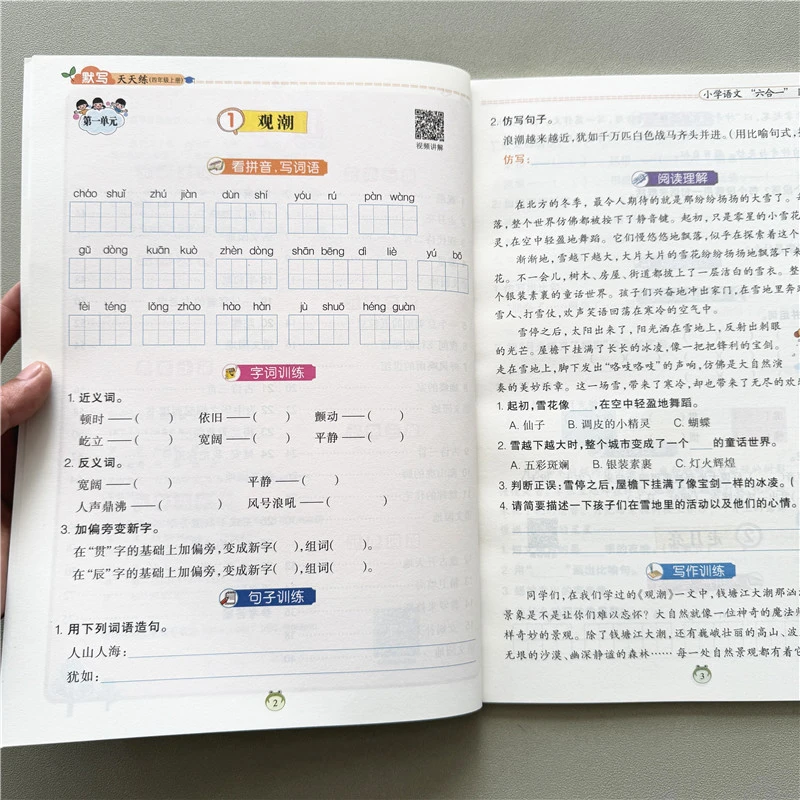 默写 天天练(四年级上册)
第一单元
1 观潮
视频讲解
看拼音,写词语
cháo shuǐ zhú jiàn dùn shí yóu rú pàn wàng
gǔ dòng kuān kuò zhèn dòng shān bēng dì liè yú bō
fèi téng lǒng zhào hào hàn jù shuō héng guàn
字词训练
1. 近义词。
顿时——( ) 依旧——( ) 颤动——( )
屹立——( ) 宽阔——( ) 平静——( )
2. 反义词。
宽阔——( ) 平静——( )
人声鼎沸——( ) 风号浪吼——( )
3. 加偏旁变新字。
在“贯”字的基础上加偏旁,变成新字( ),组词( )。
在“辰”字的基础上加偏旁,变成新字( ),组词( )。
句子训练
1. 用下列词语造句。
人山人海:
犹如:
2
小学语文 “六合一”
2. 仿写句子。
浪潮越来越近,犹如千万匹白色战马齐头并进。(用比喻句式,
仿写:
阅读理解
在北方的冬季,最令人期待的就是那纷纷扬扬的大雪了。
落,整个世界仿佛都被按下了静音键。起初,只是零星的小雪花
灵,在空中轻盈地舞蹈。它们慢悠悠地飘落,似乎在探索着这个
渐渐地,雪越下越大,大片大片的雪花纷纷扬扬地飘落下来
花。不一会儿,树木、房屋、街道都披上了一层洁白的雪衣。整
个银装素裹的童话世界。孩子们兴奋地冲出家门,在雪地里奔跑
雪人、打雪仗,欢声笑语回荡在寒冷的空气中。
雪停之后,太阳出来了,阳光洒在雪地上,反射出刺眼
的光芒。屋檐下挂满了长长的冰凌,像一把把锋利的宝剑。
走在雪地上,脚下发出“咯吱咯吱”的声响,仿佛是大自然演
奏的美妙乐章。这一场雪,带来了寒冷,却也带来了无尽的欢
1. 起初,雪花像____,在空中轻盈地舞蹈。
A. 仙子 B. 调皮的小精灵 C. 蝴蝶
2. 雪越下越大时,整个城市变成了一个____的童话世界。
A. 五彩斑斓 B. 银装素裹 C. 灯火辉煌
3. 判断正误:雪停之后,屋檐下挂满了像宝剑一样的冰凌。(
4. 请简要描述一下孩子们在雪地里的活动以及他们的心情。
写作训练
同学们,在我们学过的《观潮》一文中,钱塘江大潮那汹
景象是不是让你们难以忘怀?大自然就像一位神奇的魔法师
样奇妙的景观。除了钱塘江大潮,还有巍峨壮丽的高山、波
无垠的沙漠、幽深静谧的森林……每一处自然景观都有着它
3